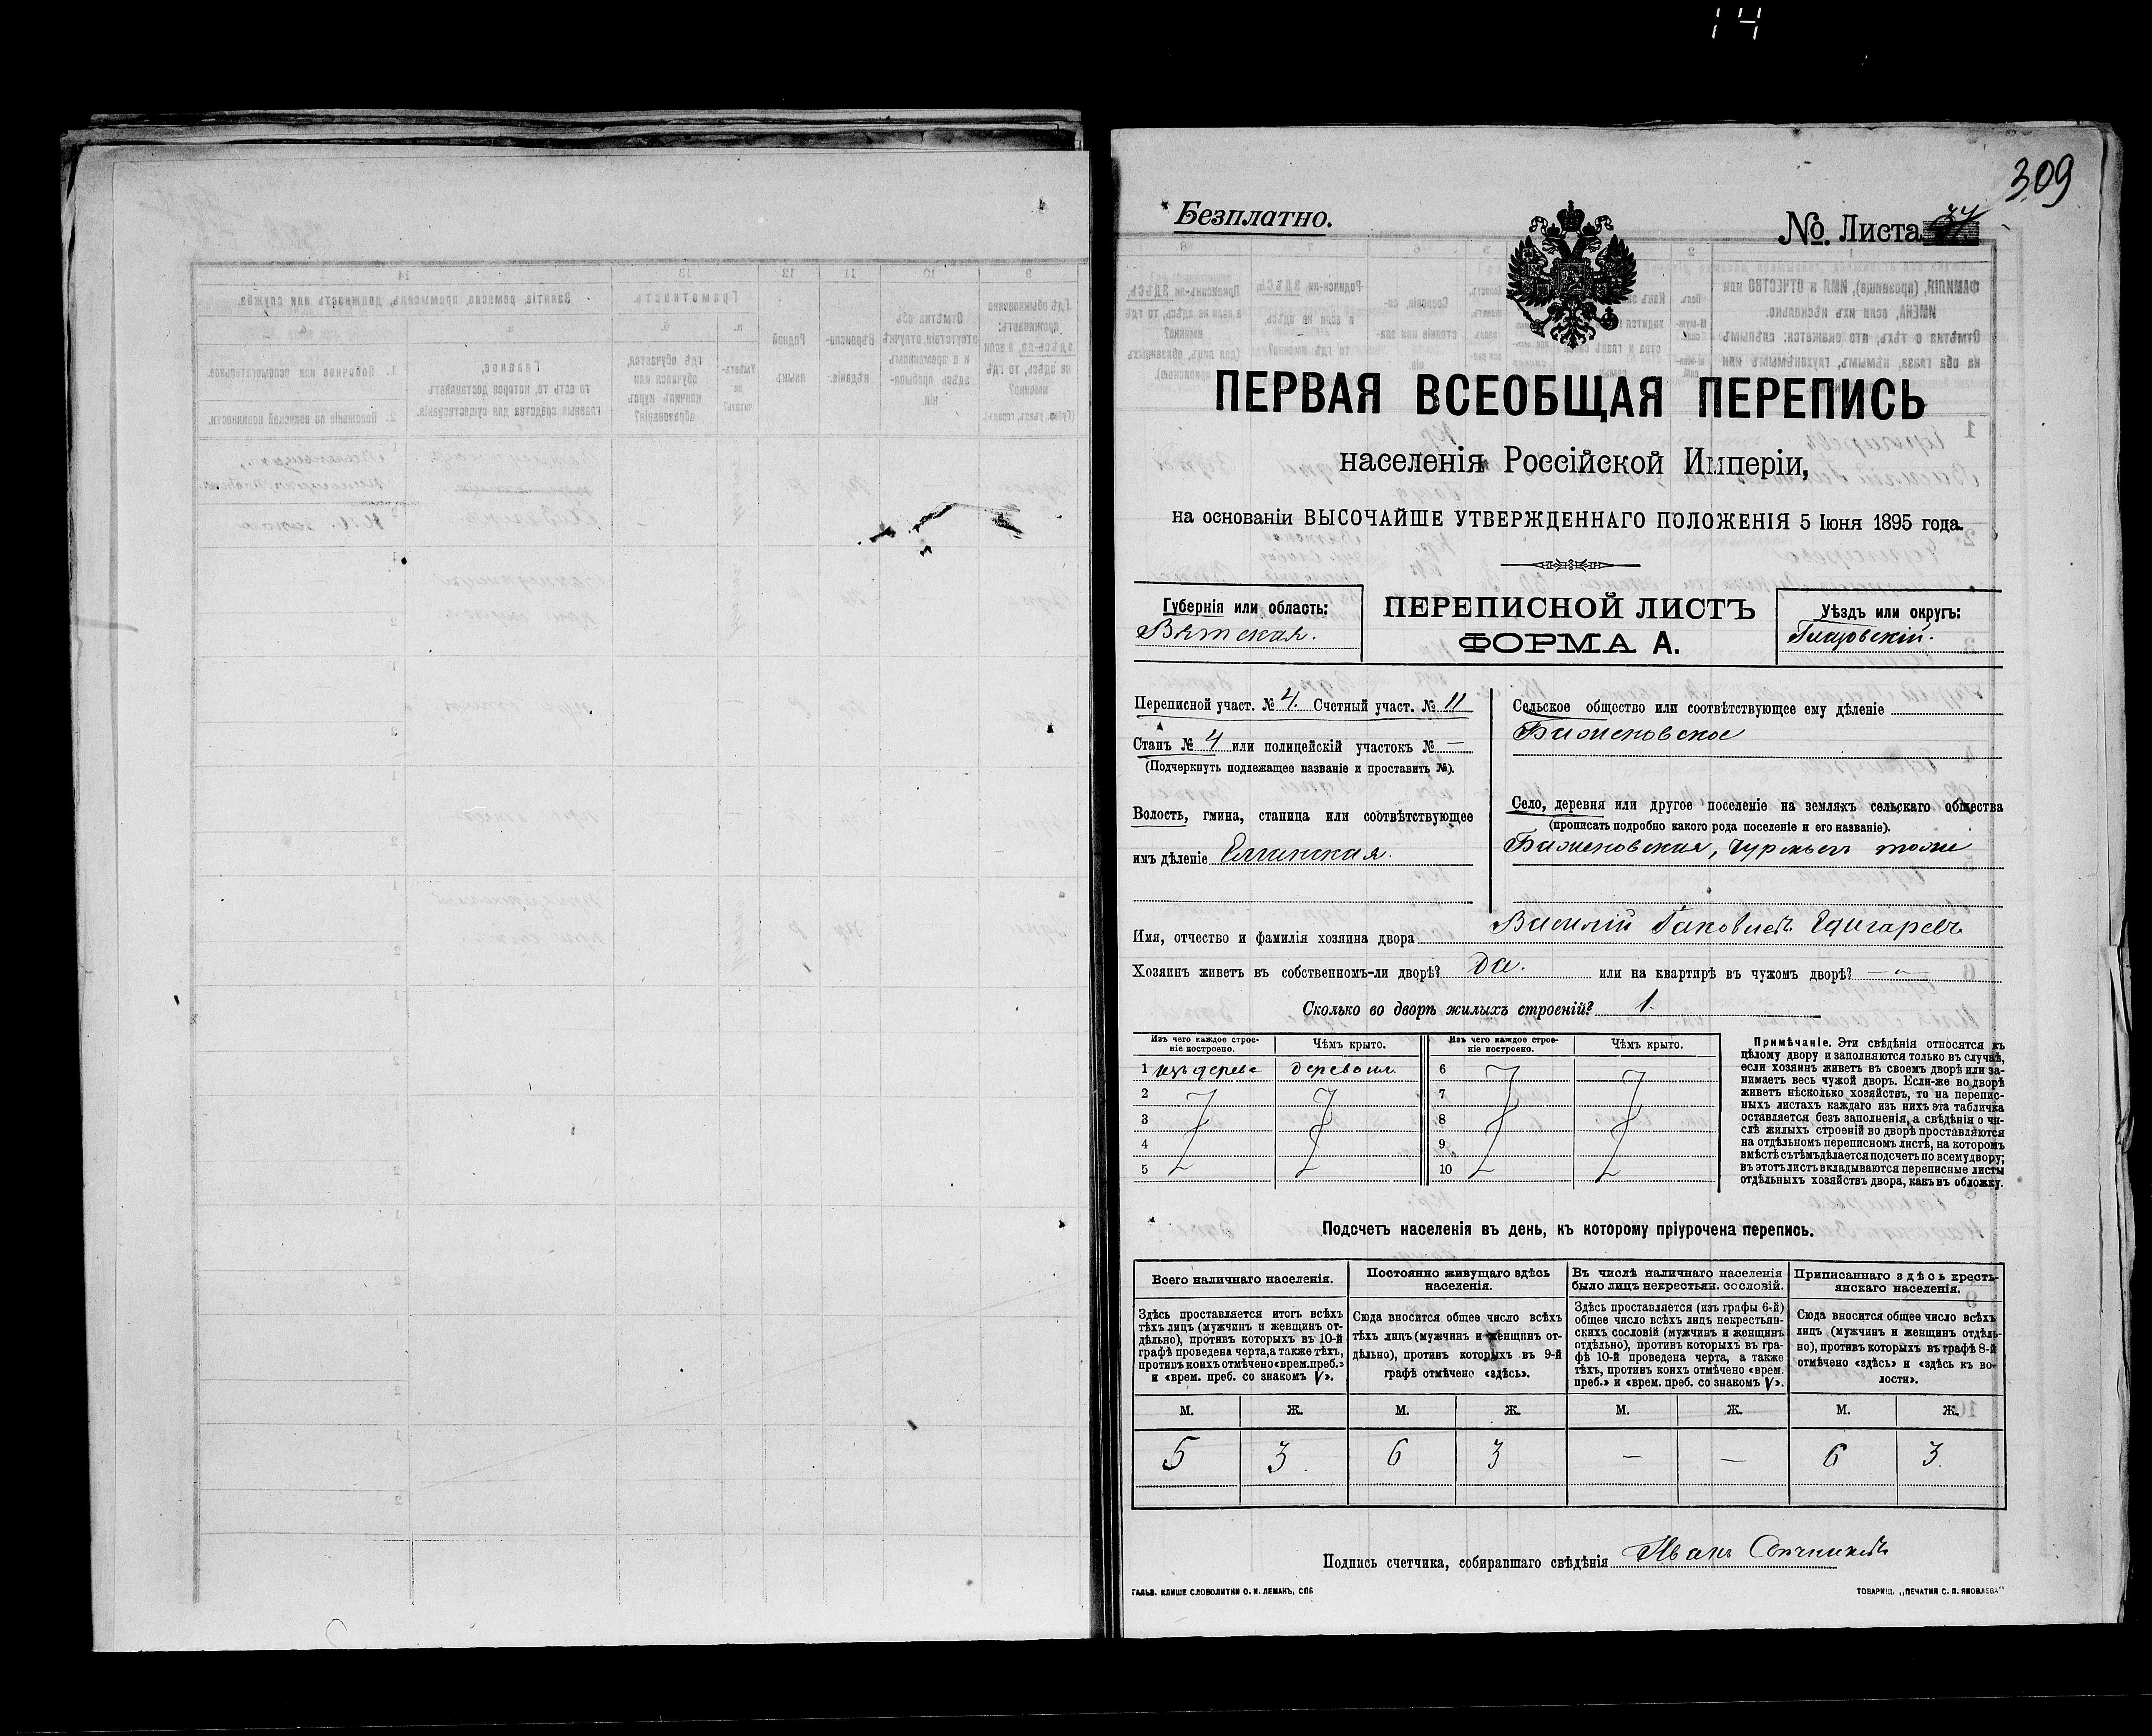 14
309
Безплатно.
№ Листа
ПЕРВАЯ ВСЕОБЩАЯ ПЕРЕПИСЬ
населенія Россійской Имперіи,
на основаніи ВЫСОЧАЙШЕ УТВЕРЖДЕННАГО ПОЛОЖЕНІЯ 5 Іюня 1895 года.
Губернія или область:
Вятская.
ПЕРЕПИСНОЙ ЛИСТЪ
ФОРМА А.
Уѣздъ или округъ:
Глазовскій.
Переписной участ. № 4. Счетный участ. № 11
Станъ № 4 или полицейскій участокъ № —
(Подчеркнуть подлежащее названіе и проставить №).
Волость, гмина, станица или соотвѣтствующее
имъ дѣленіе Елганская.
Сельское общество или соотвѣтствующее ему дѣленіе
Баженовское
Село, деревня или другое поселеніе на земляхъ сельскаго общества
(прописать подробно какого рода поселеніе и его названіе).
Баженовская, тоже
Имя, отчество и фамилія хозяина двора Василій Яковлевъ
Хозяинъ живетъ въ собственномъ-ли дворѣ? да. или на квартирѣ въ чужомъ дворѣ? — " —
Сколько во дворѣ жилыхъ строеній? 1.
Изъ чего каждое строе-
ніе построено.
Чѣмъ крыто.
Изъ чего каждое строе-
ніе построено.
Чѣмъ крыто.
1 изъ дерева деревомъ 6
2 7
3 8
4 9
5 10
Примѣчаніе. Эти свѣдѣнія относятся къ
цѣлому двору и заполняются только въ случаѣ,
если хозяинъ живетъ въ своемъ дворѣ или за-
нимаетъ весь чужой дворъ. Если-же во дворѣ
живетъ нѣсколько хозяйствъ, то на перепис-
ныхъ листахъ каждаго изъ нихъ эта табличка
оставляется безъ заполненія, а свѣдѣнія о чи-
слѣ жилыхъ строеній во дворѣ проставляются
на отдѣльномъ переписномъ листѣ, на которомъ
вмѣстѣ съ тѣмъ дѣлается подсчетъ по всему двору;
въ этотъ листъ вкладываются переписные листы
отдѣльныхъ хозяйствъ двора, какъ въ обложку.
Подсчетъ населенія въ день, къ которому пріурочена перепись.
Всего наличнаго населенія.
Здѣсь проставляется итогъ всѣхъ
тѣхъ лицъ (мужчинъ и женщинъ от-
дѣльно), противъ которыхъ въ 10-й
графѣ проведена черта, а также тѣхъ,
противъ коихъ отмѣчено «врем. преб.»
и «врем. преб. со знакомъ V».
Постоянно живущаго здѣсь
населенія.
Сюда вносится общее число всѣхъ
тѣхъ лицъ (мужчинъ и женщинъ от-
дѣльно), противъ которыхъ въ 9-й
графѣ отмѣчено «здѣсь».
Въ числѣ наличнаго населенія
было лицъ некрестьян. сословій.
Здѣсь проставляется (изъ графы 6-й)
общее число всѣхъ лицъ некрестьян-
скихъ сословій (мужчинъ и женщинъ
отдѣльно), противъ которыхъ въ гра-
фѣ 10-й проведена черта, а также
тѣхъ, противъ коихъ отмѣчено «врем.
преб.» и «врем. преб. со знакомъ V».
Приписаннаго здѣсь кресть-
янскаго населенія.
Сюда вносится общее число всѣхъ
лицъ (мужчинъ и женщинъ отдѣль-
но), противъ которыхъ въ графѣ 8-й
отмѣчено «здѣсь» и «здѣсь къ во-
лости».
М. Ж. М. Ж. М. Ж. М. Ж.
5 3. 6 3 — — 6 3.
Подпись счетчика, собиравшаго свѣдѣнія Иванъ
ГАЛЬВ. КЛИШЕ СЛОВОЛИТНИ О. И. ЛЕМАНЪ, СПБ
ТОВАРИЩ. „ПЕЧАТНЯ С. П. ЯКОВЛЕВА"